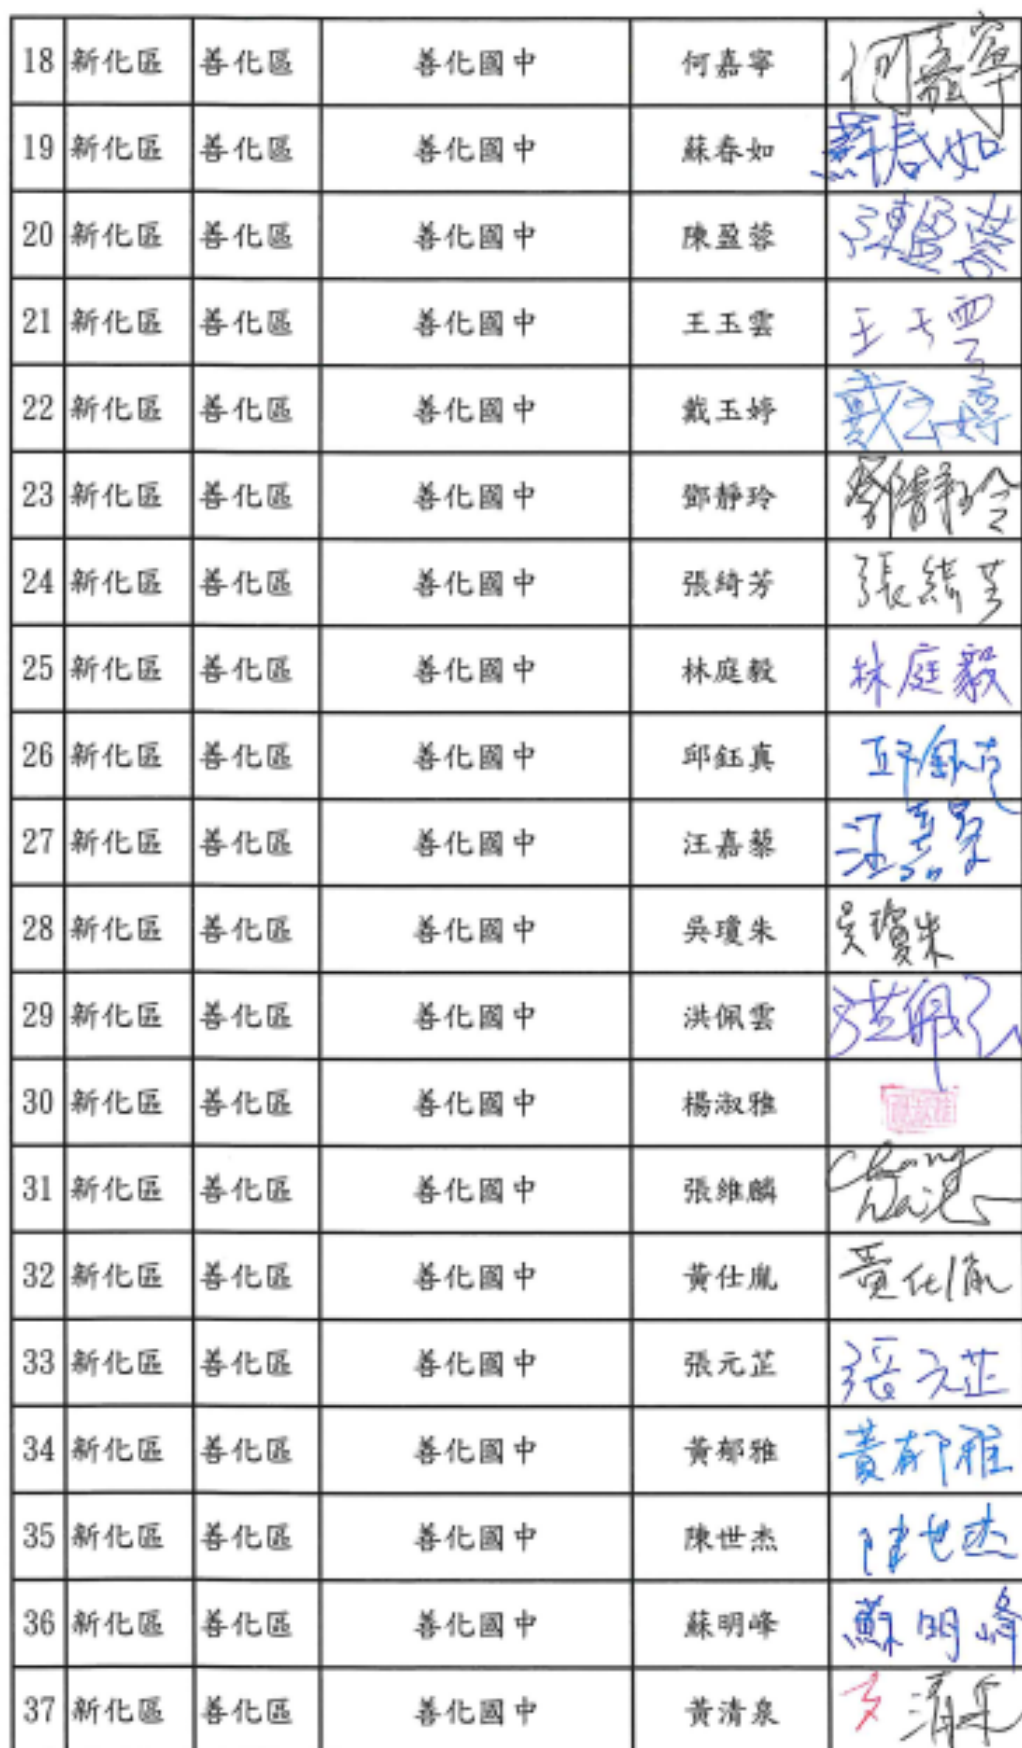 18 新化區 善化區 善化國中 何嘉寧 何嘉寧
19 新化區 善化區 善化國中 蘇春如 蘇春如
20 新化區 善化區 善化國中 陳盈蓉 陳盈蓉
21 新化區 善化區 善化國中 王玉雲 王玉雲
22 新化區 善化區 善化國中 戴玉婷 戴玉婷
23 新化區 善化區 善化國中 鄧靜玲 鄧靜玲
24 新化區 善化區 善化國中 張綺芳 張綺芳
25 新化區 善化區 善化國中 林庭毅 林庭毅
26 新化區 善化區 善化國中 邱鈺真 邱鈺真
27 新化區 善化區 善化國中 汪嘉藜 汪嘉
28 新化區 善化區 善化國中 吳瓊朱 吳瓊朱
29 新化區 善化區 善化國中 洪佩雲 洪佩雲
30 新化區 善化區 善化國中 楊淑雅
31 新化區 善化區 善化國中 張維麟 Chang
32 新化區 善化區 善化國中 黃仕胤 黃仕胤
33 新化區 善化區 善化國中 張元芷 張元芷
34 新化區 善化區 善化國中 黃郁雅 黃郁雅
35 新化區 善化區 善化國中 陳世杰 陳世杰
36 新化區 善化區 善化國中 蘇明峰 蘇明峰
37 新化區 善化區 善化國中 黃清泉 清泉